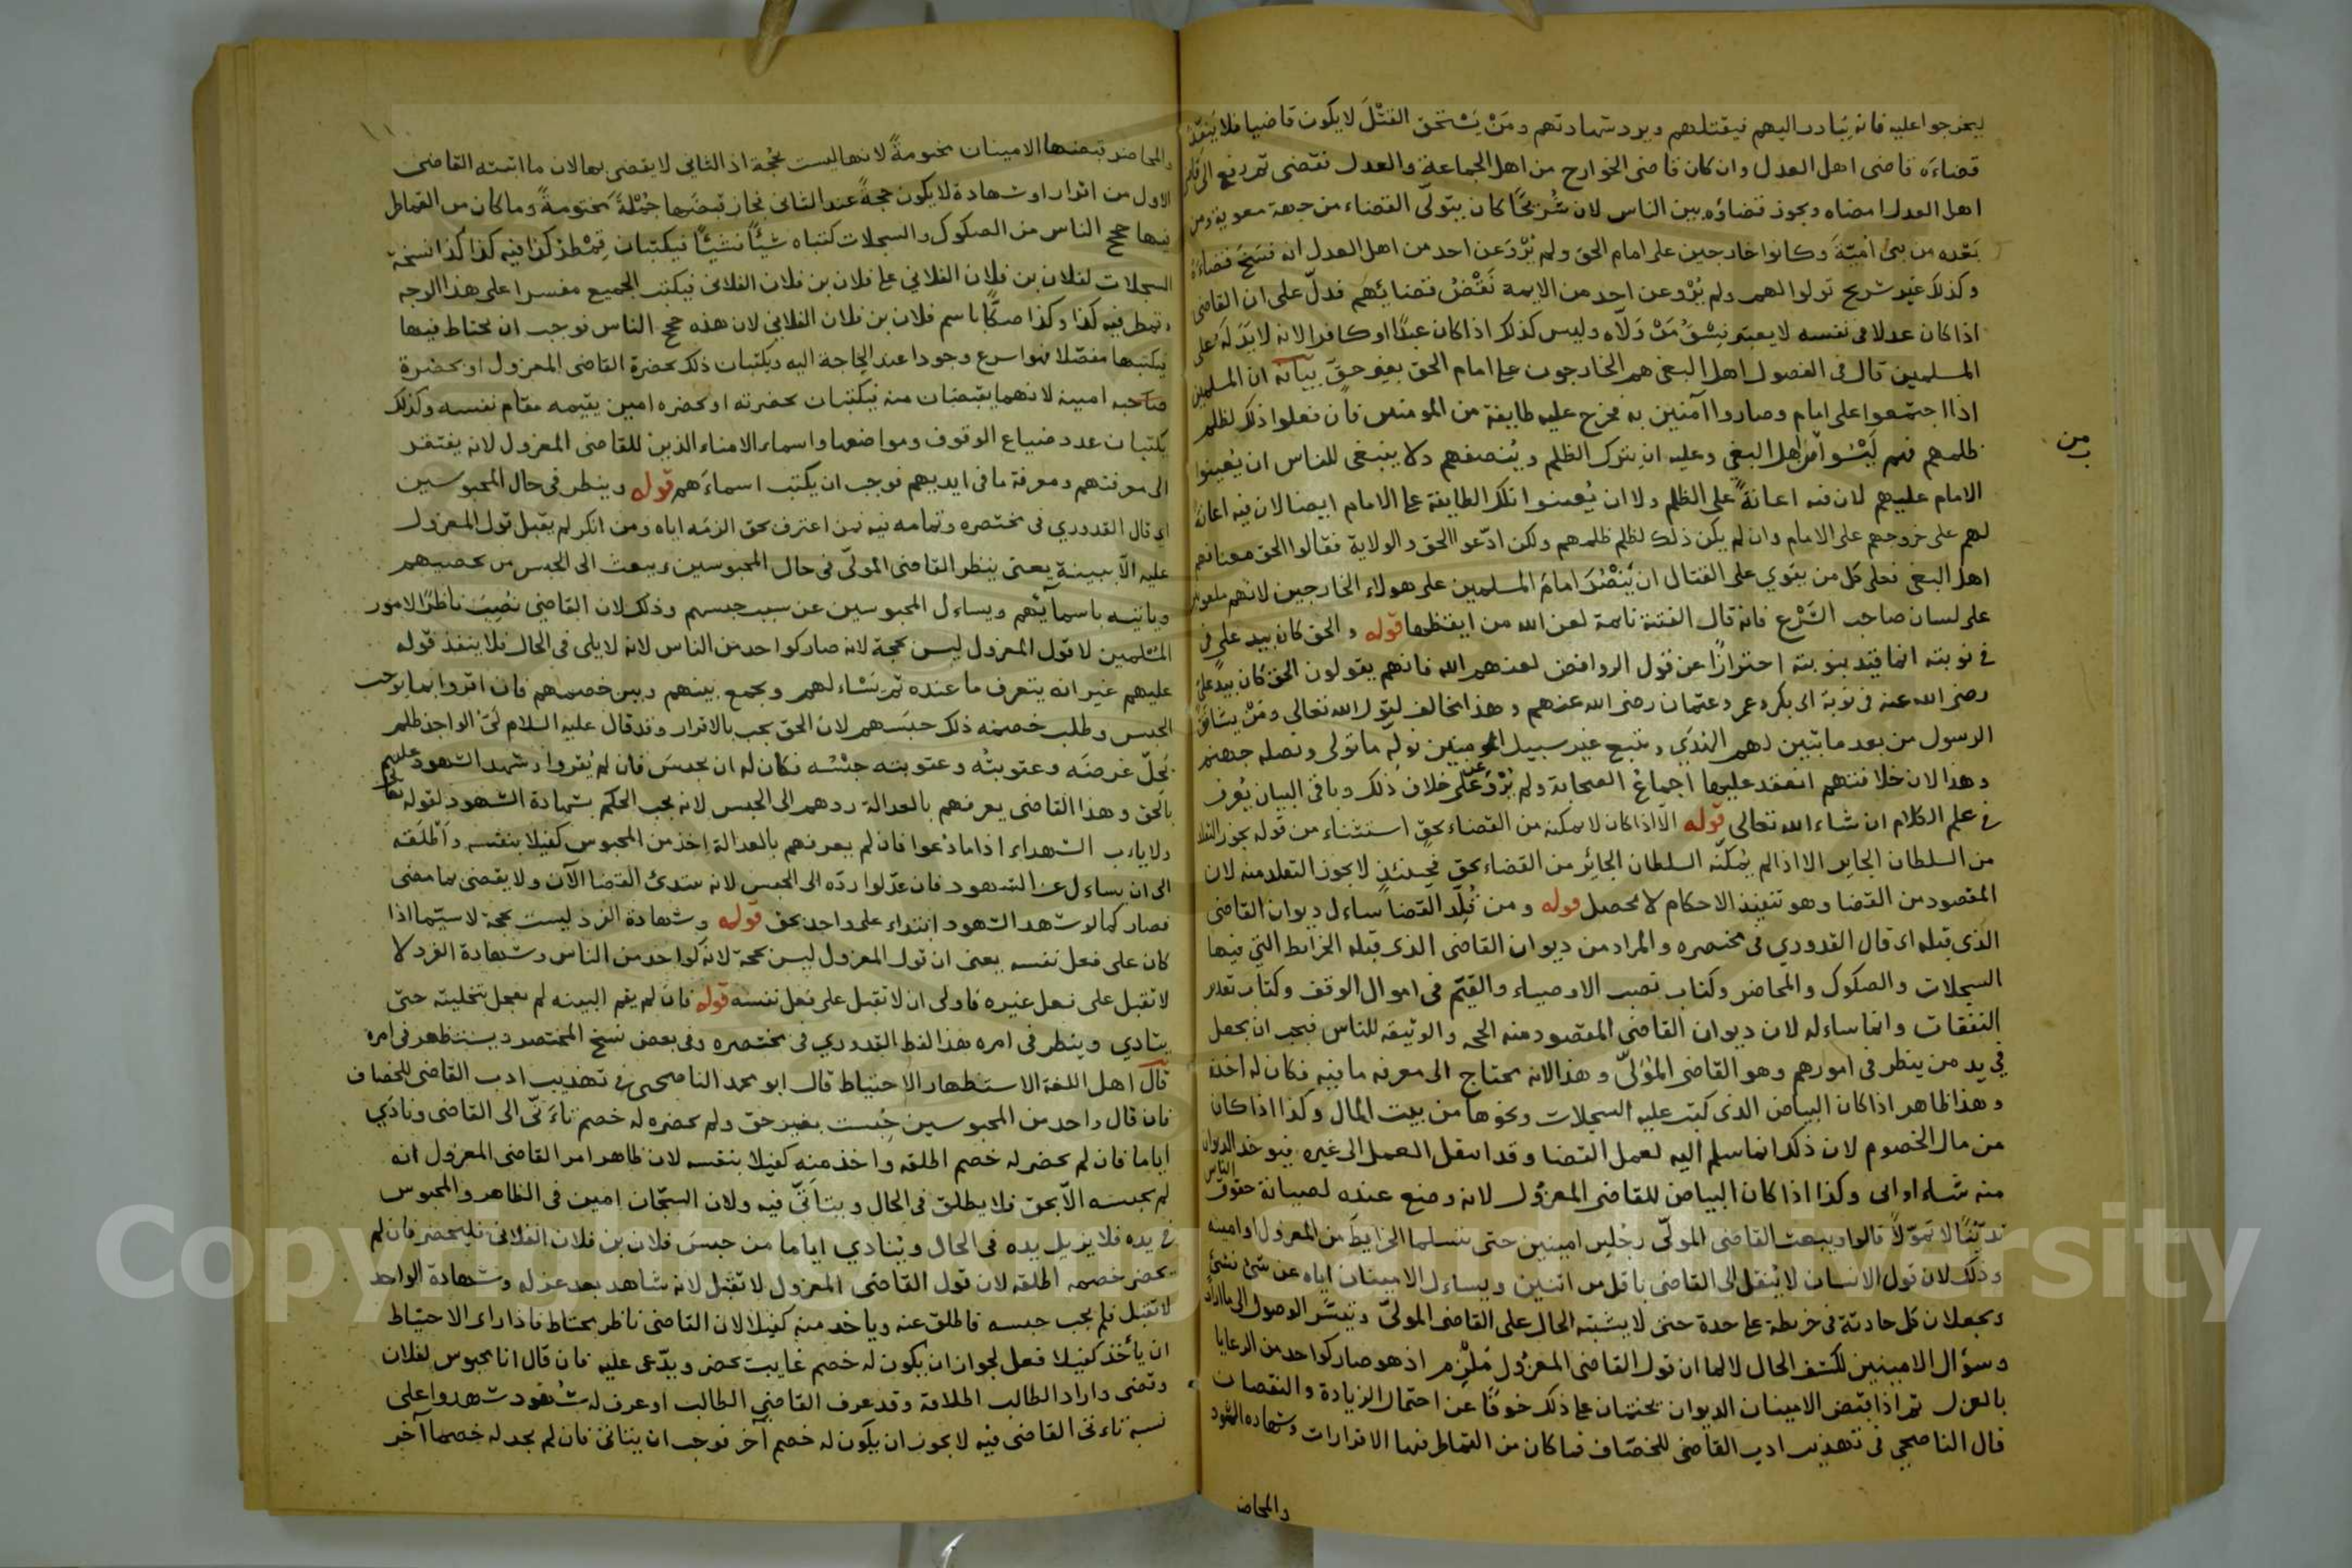 ليخرجوا عليه فانه يبادر اليهم فيقتلهم ويرد شهادتهم ومن يستحق القتل لا يكون قاضيا فلا ينفذ
قضاءه قاضى اهل العدل وان كان قاضى الخوارج من اهل الجماعة والعدل فقضى ثم رفع الى قاضى
اهل العدل امضاه ويجوز قضاؤه بين الناس لان شريحا كان يتولى القضاء من جهة معوية ومن
بعده من بنى امية وكانوا خارجين على امام الحق ولم يرو عن احد من اهل العدل انه فسخ قضاءه
وكذلك غير شريح تولوا لهم ولم يرو عن احد من الايمة نقض قضائهم فدل على ان القاضى
اذا كان عدلا فى نفسه لا يعتبر بفسق من ولاه وليس كذلك اذا كان عبدا او كافرا لانه لا يد له على
المسلمين قال فى الفصول اهل البغى هم الخارجون على امام الحق بغير حق بيانه ان المسلمين
اذا اجتمعوا على امام وصاروا آمنين به فخرج عليه طايفة من المومنين فان فعلوا ذلك لظلم
ظلمهم فهم ليسوا من اهل البغى وعليه ان يترك الظلم وينصفهم ولا ينبغى للناس ان يعينوا
من
الامام عليهم لان فيه اعانة على الظلم ولا ان يعينوا تلك الطايفة على الامام ايضا لان فيه اعانة
لهم على خروجهم على الامام وان لم يكن ذلك لظلم ظلمهم ولكن ادعوا الحق والولاية فقالوا الحق معنا فهم
اهل البغى فعلى كل من يقوي على القتال ان ينصر امام المسلمين على هولاء الخارجين لانهم ملعونون
على لسان صاحب الشرع فانه قال الفتنة نائمة لعن الله من ايقظها قوله والحق كان بيد على فى
فى نوبته انما قيد بنوبته احترازا عن قول الروافض لعنهم الله فانهم يقولون الحق كان بيد على
رضى الله عنه فى نوبة ابى بكر وعمر وعثمان رضى الله عنهم وهذا مخالف لقول الله تعالى ومن يشاقق
الرسول من بعد ما تبين لهم الهدى ويتبع غير سبيل المومنين نوله ما تولى ونصله جهنم
وهذا لان خلافتهم انعقد عليها اجماع الصحابة ولم يرو عن على خلاف ذلك وباقى البيان يعرف
فى علم الكلام ان شاء الله تعالى قوله الا اذا كان لا يمكنه من القضاء بحق استثناء من قوله يجوز التقلد
من السلطان الجاير الا اذا لم يمكنه السلطان الجائر من القضاء بحق فحينئذ لا يجوز التقلد منه لان
المقصود من القضا وهو تنفيذ الاحكام لا يحصل قوله ومن قلد القضا ساءل ديوان القاضى
الذى قبله اى قال القدوري فى مختصره والمراد من ديوان القاضى الذى قبله الخرائط التى فيها
السجلات والصكوك والمحاضر وكتاب نصب الاوصياء والقيم فى اموال الوقف وكتاب تقدير
النفقات وانما ساءله لان ديوان القاضى المقصود منه الحجه والوثيقه للناس فيجب ان يجعل
فى يد من ينظر فى امورهم وهو القاضى المولى وهذا لانه محتاج الى معرفه ما فيه فكان له اخذه
وهذا ظاهر اذا كان البياض الذى كتب عليه السجلات ونحوها من بيت المال وكذا اذا كان
من مال الخصوم لان ذلك انما سلم اليه لعمل القضا وقد انتقل العمل الى غيره فيوخذ الديوان
منه شاء او ابى وكذا اذا كان البياض للقاضى المعزول لانه وضع عنده لصيانة حقوق الناس
تدينا لا تمولا قالوا ويبعث القاضى المولى رجلين امينين حتى يتسلما الخرايط من المعزول او امينه
وذلك لان قول الانسان لا ينقل الى القاضى باقل من اثنين ويساءل الامينان اياه عن شئ شئ
ويجعلان كل حادثة فى خريطة على حدة حتى لا يشتبه الحال على القاضى المولى ويتيسر الوصول الى ما اراد
وسؤال الامينين لكشف الحال لا لما ان قول القاضى المعزول ملزم اذ هو صار كواحد من الرعايا
بالعزل ثم اذا قبض الامينان الديوان يختمان على ذلك خوفا عن احتمال الزيادة والنقصان
قال الناصحى فى تهذيب ادب القاضى للخصاف فما كان من القماطر فيها الاقرارات وشهادة الشهود
والمحاضر
والمحاضر قبضها الامينان مختومة لانها ليست بحجة اذ الثانى لا يقضى بها لان ما اثبته القاضى
الاول من اقرار او شهادة لا يكون حجة عند الثانى فجاز قبضها جملة مختومة وما كان من القماطر
فيها حجج الناس من الصكوك والسجلات كتباه شيئا فشيئا فيكتبان قمطر كذا فيه كذا كذا نسخة
السجلات لفلان بن فلان الفلانى على فلان بن فلان الفلانى فيكتب الجميع مفسرا على هذا الوجه
وقمطر فيه كذا وكذا صكا باسم فلان بن فلان الفلانى لان هذه حجج الناس فوجب ان يحتاط فيها
فيكتبها مفصلا فهو اسرع وجودا عند الحاجة اليه ويكتبان ذلك بحضرة القاضى المعزول او بحضرة
صاحبه امينه لانهما يقبضان منه فيكتبان بحضرته او بحضره امين يقيمه مقام نفسه وكذلك
يكتبان عدد ضياع الوقوف ومواضعها واسماء الامناء الذين للقاضى المعزول لانه يفتقر
الى معرفتهم ومعرفة ما فى ايديهم فوجب ان يكتب اسماءهم قوله وينظر فى حال المحبوسين
اى قال القدوري فى مختصره وتمامه فيه فمن اعترف بحق الزمه اياه ومن انكر لم يقبل قول المعزول
عليه الا ببينة يعنى ينظر القاضى المولى فى حال المحبوسين ويبعث الى الحبس من يحصيهم
وياتيه باسمائهم ويساءل المحبوسين عن سبب حبسهم وذلك لان القاضى نصب ناظرا لامور
المسلمين لا قول المعزول ليس بحجة لانه صار كواحد من الناس لانه لا يلى فى الحال فلا ينفذ قوله
عليهم غير انه يتعرف ما عنده ثم يساءلهم ويجمع بينهم وبين خصمهم فان اقروا بما يوجب
الحبس وطلب خصمه ذلك حبسهم لان الحق يجب بالاقرار وقد قال عليه السلام لى الواجد ظلم
يحل عرضه وعقوبته وعقوبته حبسه فكان له ان يحبس فان لم يقروا وشهد الشهود عليهم
بالحق وهذا القاضى يعرفهم بالعدالة ردهم الى الحبس لانه يجب الحكم بشهادة الشهود لقوله تعالى
ولا ياءب الشهداء اذا ما دعوا فان لم يعرفهم بالعدالة اخذ من المحبوس كفيلا بنفسه واطلقه
الى ان يساءل عن الشهود فان عدلوا رده الى الحبس لانه يبتدئ القضا الآن ولا يقضى بما مضى
فصار كما لو شهد الشهود ابتداء على واحد بحق قوله وشهادة الفرد ليست بحجة لا سيما اذا
كان على فعل نفسه يعنى ان قول المعزول ليس بحجة لانه كواحد من الناس وشهادة الفرد لا
لا تقبل على فعل غيره فاولى ان لا تقبل على فعل نفسه قوله فان لم يقم البينه لم يعجل بتخليته حتى
ينادي وينظر فى امره هذا لفظ القدوري فى مختصره وفى بعض نسخ المختصر ويستظهر فى امره
قال اهل اللغة الاستظهار الاحتياط قال ابو محمد الناصحى فى تهذيب ادب القاضى للخصاف
فان قال واحد من المحبوسين حبست بغير حق ولم يحضره له خصم تاءنى الى القاضى ونادي
اياما فان لم يحضر له خصم اطلقه واخذ منه كفيلا بنفسه لان ظاهر امر القاضى المعزول انه
لم يحبسه الا بحق فلا يطلق فى الحال ويتانى فيه ولان السجان امين فى الظاهر والمحبوس
فى يده فلا يزيل يده فى الحال وينادي اياما من حبس فلان بن فلان الفلانى فليحضر فان لم
يحضر خصمه اطلقه لان قول القاضى المعزول لا تقبل لانه شاهد بعد عزله وشهادة الواحد
لا تقبل فلم يجب حبسه فاطلق عنه وياخذ منه كفيلا لان القاضى ناظر محتاط فاذا راء الاحتياط
ان يأخذ كفيلا فعل لجواز ان يكون له خصم غايب يحضر ويدعى عليه فان قال انا محبوس لفلان
وتمنى واراد الطالب اطلاقه وقد عرف القاضى الطالب او عرف له شهود شهدوا على
نسبة تاءنى القاضى فيه لا يجوز ان يكون له خصم آخر فوجب ان يتانى فان لم يجد له خصما آخر
Copyright © King Saud University